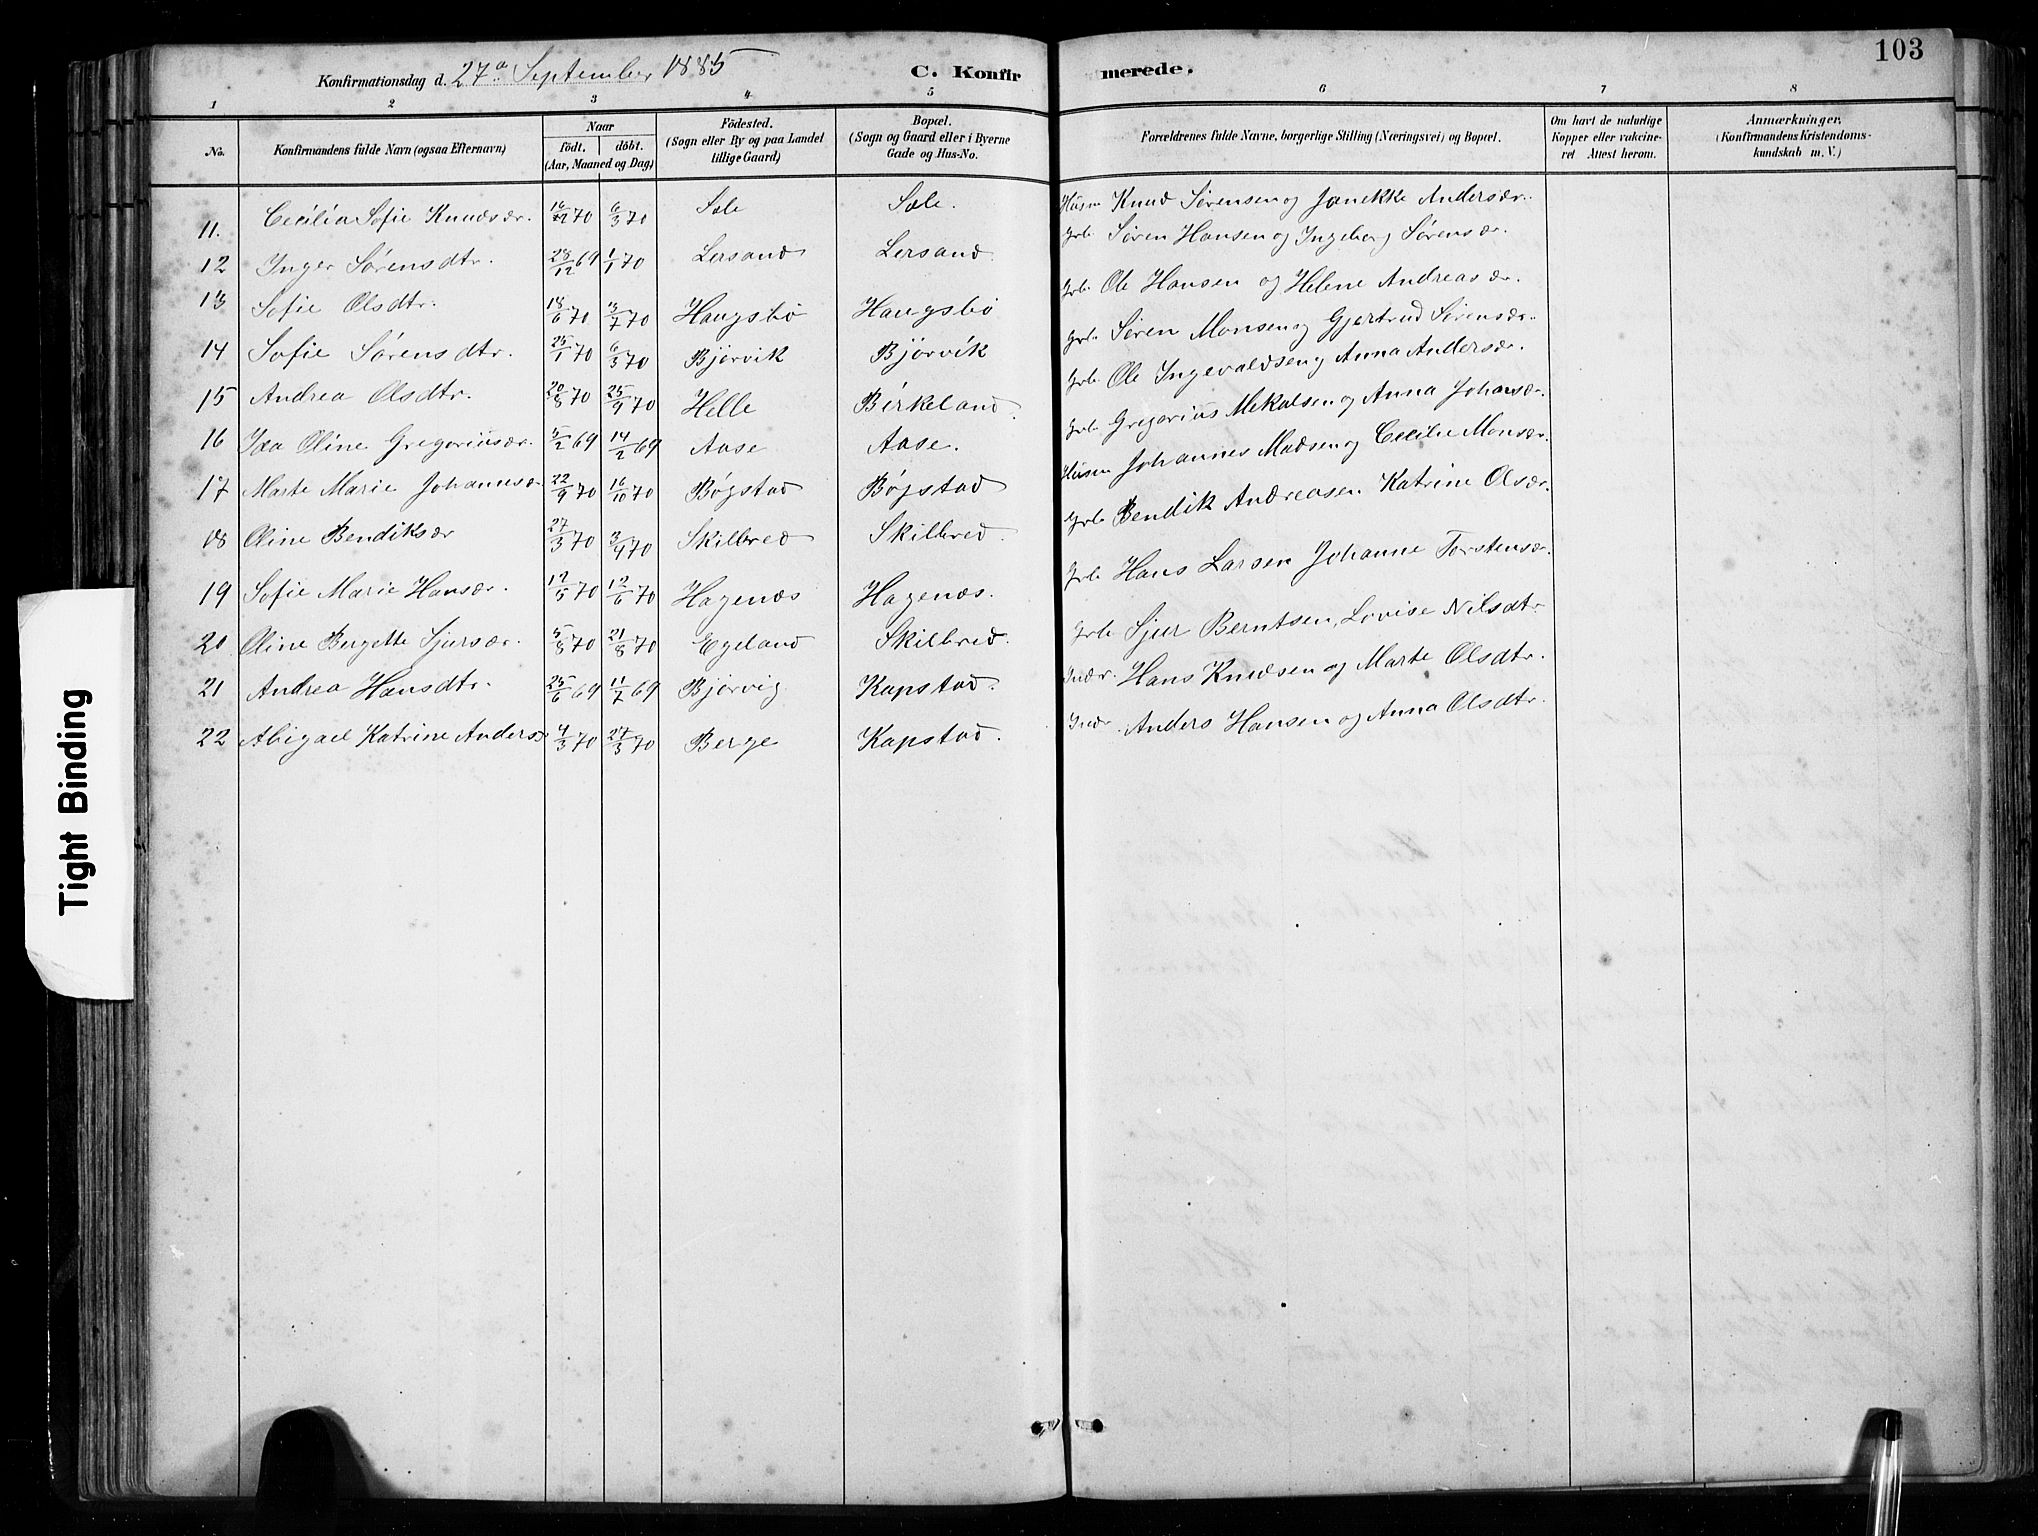 103
Konfirmationsdag d. 27de September 1885
C. Konfir merede.
1 2 3 4 5 6 7 8
No. Konfirmandens fulde Navn (ogsaa Efternavn) Naar födt. döbt. (Aar, Maaned og Dag) Födested. (Sogn eller By og paa Landet tillige Gaard) Bopæl. (Sogn og Gaard eller i Byerne Gade og Hus-No. Forældrenes fulde Navne, borgerlige Stilling (Næringsvei) og Bopæl. Om havt de naturlige Kopper eller vakcineret Attest herom. Anmærkninger, (Konfirmandens Kristendomskundskab m. V.)
11. Cecilia Sofie Knudsdr. 16/2 70 6/3 70 Sole Sole. Husm Knud Sørensen og Janikke Andersdr.
12 Inger Sørensdtr. 28/12 69 1/1 70 Lersand Lersand. Grb. Søren Hansen og Ingeborg Sørensdr.
13 Sofie Olsdtr. 18/6 70 3/7 70 Haugsbø Haugsbø Grb. Ole Hansen og Helene Andreasdr.
14 Sofie Sørensdtr. 25/1 70 6/3 70 Bjørvik Bjørvik Grb. Søren Monsen og Gjertrud Sørensdr.
15 Andrea Olsdtr. 20/8 70 25/9 70 Helle Birkeland. Grb Ole Ingevaldsen og Anna Andersdr.
16 Ida Oline Gregoriusdr. 5/2 69 14/2 69 Aase Aase. Grb Gregorius Mikalsen og Anna Johansdr.
17 Marte Marie Johannesdr 22/9 70 16/10 70 Bøgstad Bøgstad Husm Johannes Madsen og Cecilie Monsdr.
18 Oline Bendiksdr 27/3 70 3/4 70 Skilbred Skilbred. Grb Bendik Andreasen Katrine Olsdr.
19 Sofie Marie Hansdr. 17/5 70 12/6 70 Hagenæs Hagenæs. Grb Hans Larsen Johanne Torstensdr.
20 Oline Bergitte Sjursdr. 5/8 70 21/8 70 Egeland Skilbred. Grb Sjur Berntsen, Lovise Nilsdtr.
21 Andrea Hansdtr. 25/6 69 11/7 69 Bjørvig Kapstad. Indr. Hans Knudsen og Marte Olsdtr.
22 Abigael Katrine Andersdr 4/3 70 27/3 70 Berge Kapstad. Indr Anders Hansen og Anna Olsdtr.
Tight Binding